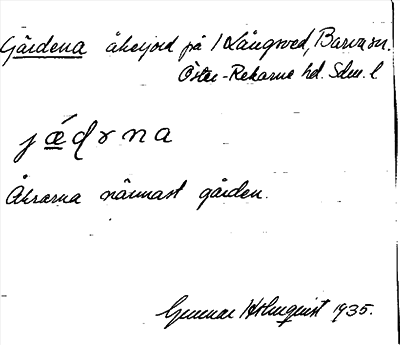 Gärdena åkerjord på 1 Långsved, Barva sn.
Öster-Rekarne hd. Sdm. l
jǽdrna
Åkrarna närmast gården.
Gunnar Holmquist 1935.